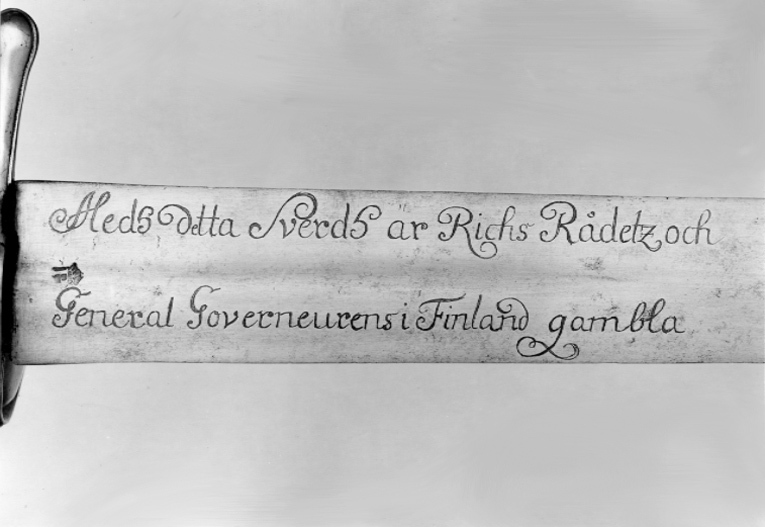 Meds detta Sverds är Richs Rådetz och
General Governeurens i Finland gambla